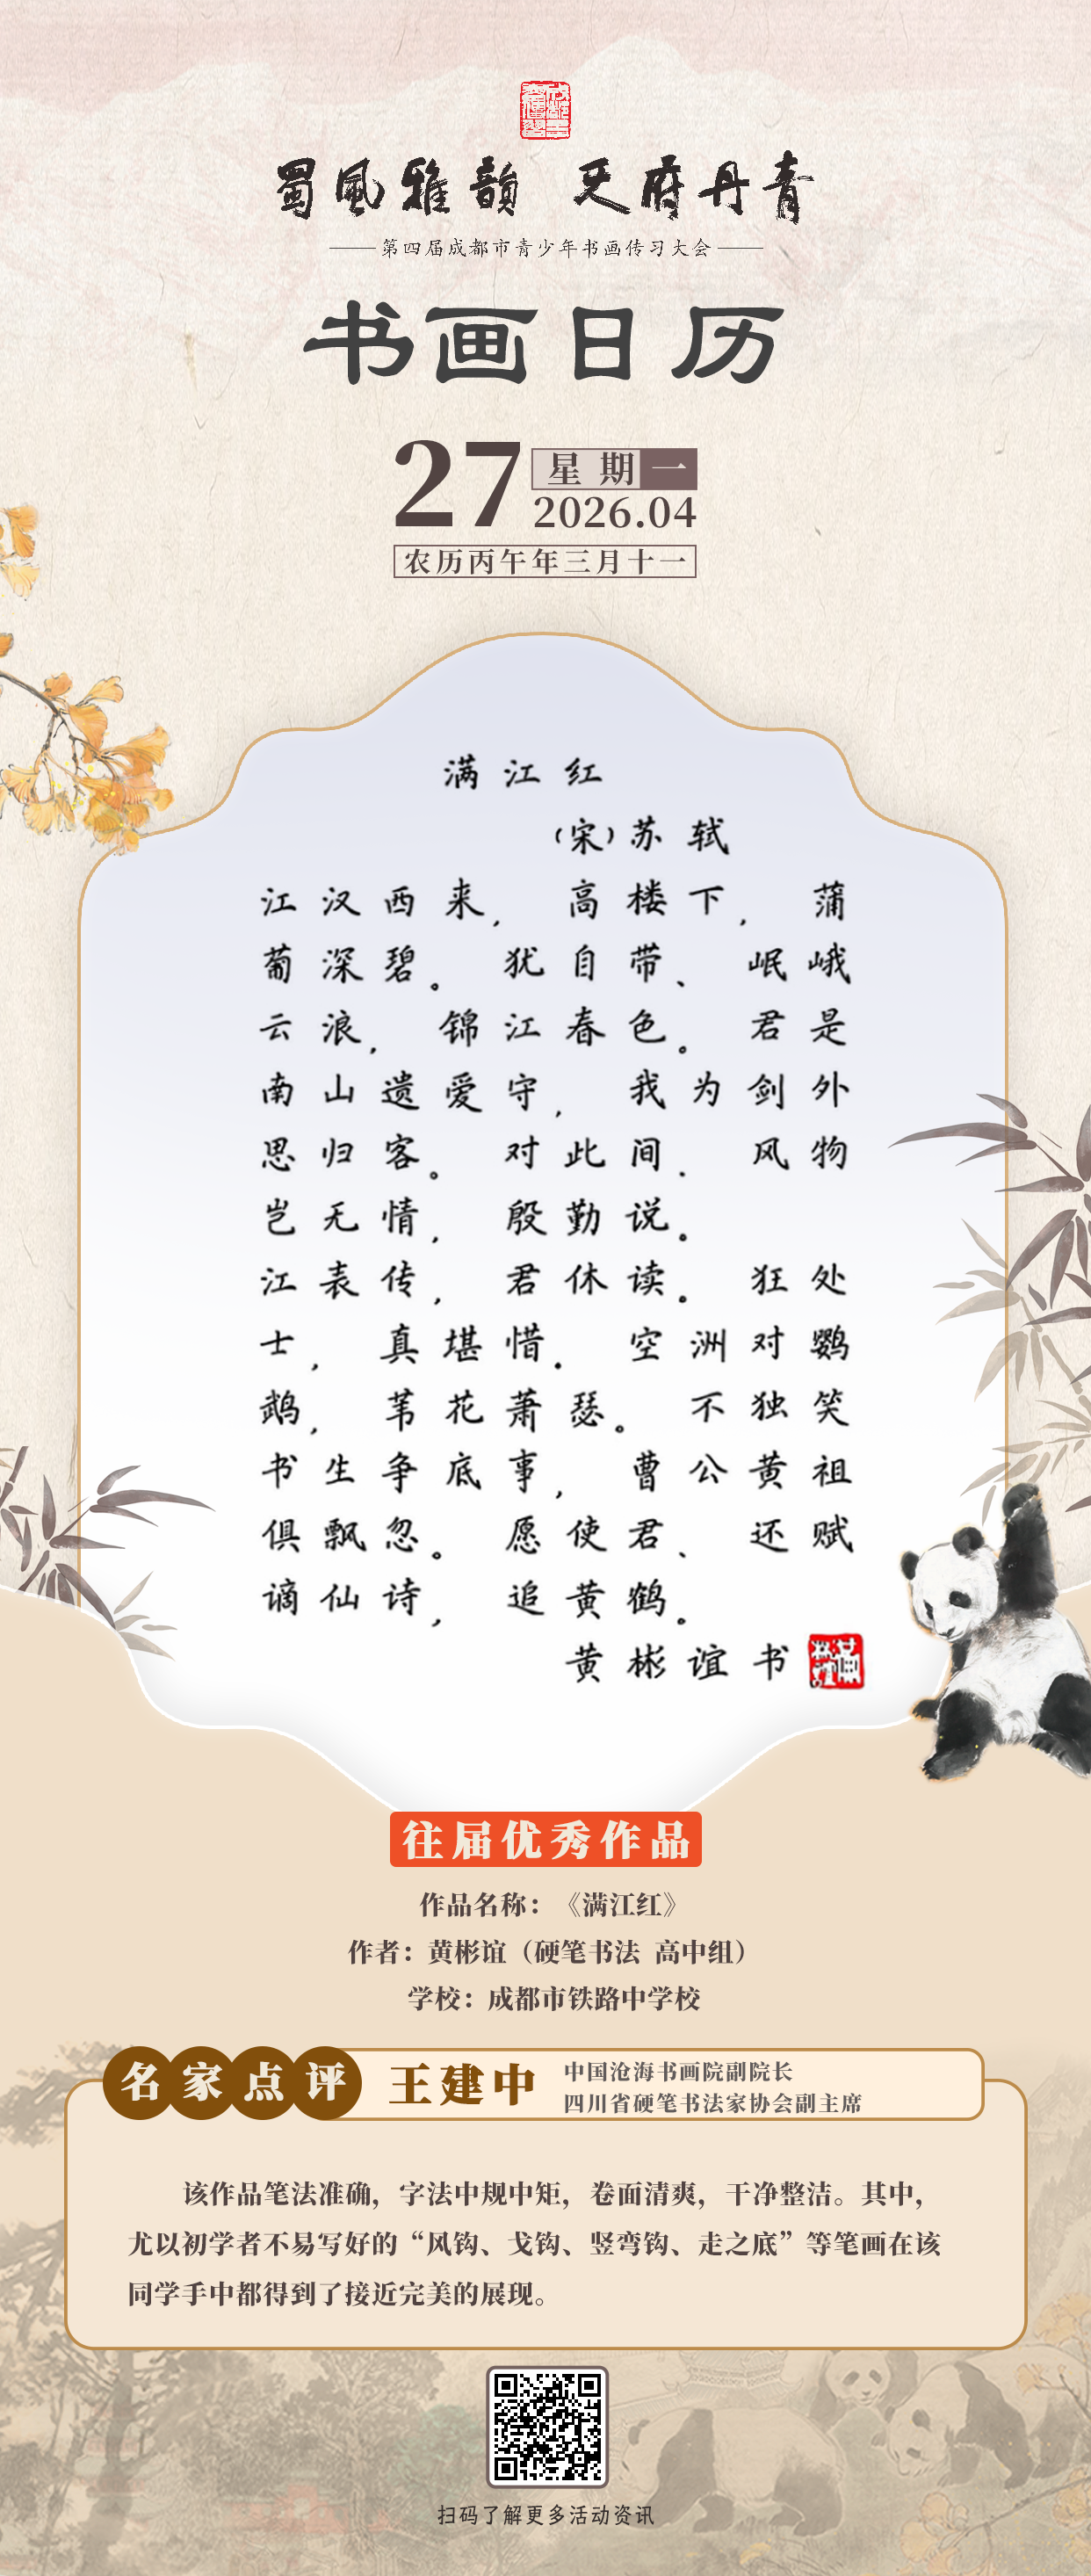 蜀风雅韵 天府丹青
第四届成都市青少年书画传习大会
书画日历
27 星期一
2026.04
农历丙午年三月十一
满江红
(宋)苏轼
江汉西来，高楼下，蒲
葡深碧。犹自带、岷峨
云浪，锦江春色。君是
南山遗爱守，我为剑外
思归客。对此间、风物
岂无情，殷勤说。
江表传，君休读。狂处
士，真堪惜。空洲对鹦
鹉，苇花萧瑟。不独笑
书生争底事，曹公黄祖
俱飘忽。愿使君、还赋
谪仙诗，追黄鹤。
黄彬谊书
往届优秀作品
作品名称：《满江红》
作者：黄彬谊（硬笔书法 高中组）
学校：成都市铁路中学校
名家点评 王建中
中国沧海书画院副院长
四川省硬笔书法家协会副主席
该作品笔法准确，字法中规中矩，卷面清爽，干净整洁。其中，
尤以初学者不易写好的“风钩、戈钩、竖弯钩、走之底”等笔画在该
同学手中都得到了接近完美的展现。
扫码了解更多活动资讯